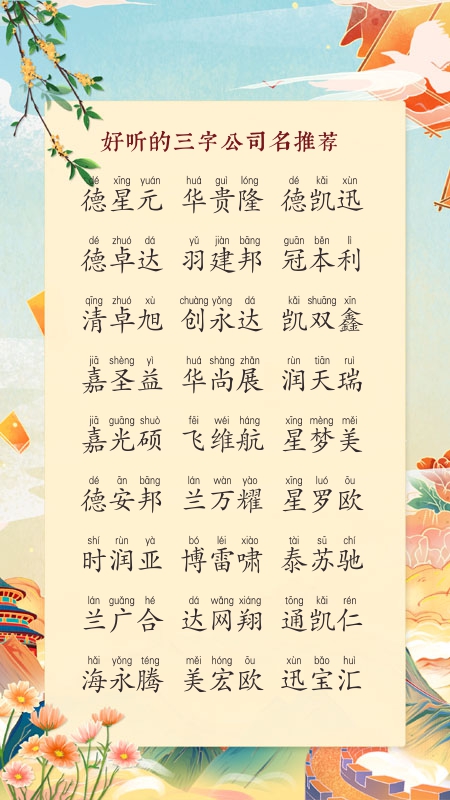 好听的三字公司名推荐
dé xīng yuán huá guì lóng dé kǎi xùn
德星元 华贵隆 德凯迅
dé zhuó dá yǔ jiàn bāng guān běn lì
德卓达 羽建邦 冠本利
qīng zhuó xù chuàng yǒng dá kǎi shuāng xīn
清卓旭 创永达 凯双鑫
jiā shèng yì huá shàng zhǎn rùn tiān ruì
嘉圣益 华尚展 润天瑞
jiā guāng shuò fēi wéi háng xīng mèng měi
嘉光硕 飞维航 星梦美
dé ān bāng lán wàn yào xīng luó ōu
德安邦 兰万耀 星罗欧
shí rùn yà bó léi xiào tài sū chí
时润亚 博雷啸 泰苏驰
lán guǎng hé dá wǎng xiáng tōng kǎi rén
兰广合 达网翔 通凯仁
hǎi yǒng téng měi hóng ōu xùn bǎo huì
海永腾 美宏欧 迅宝汇